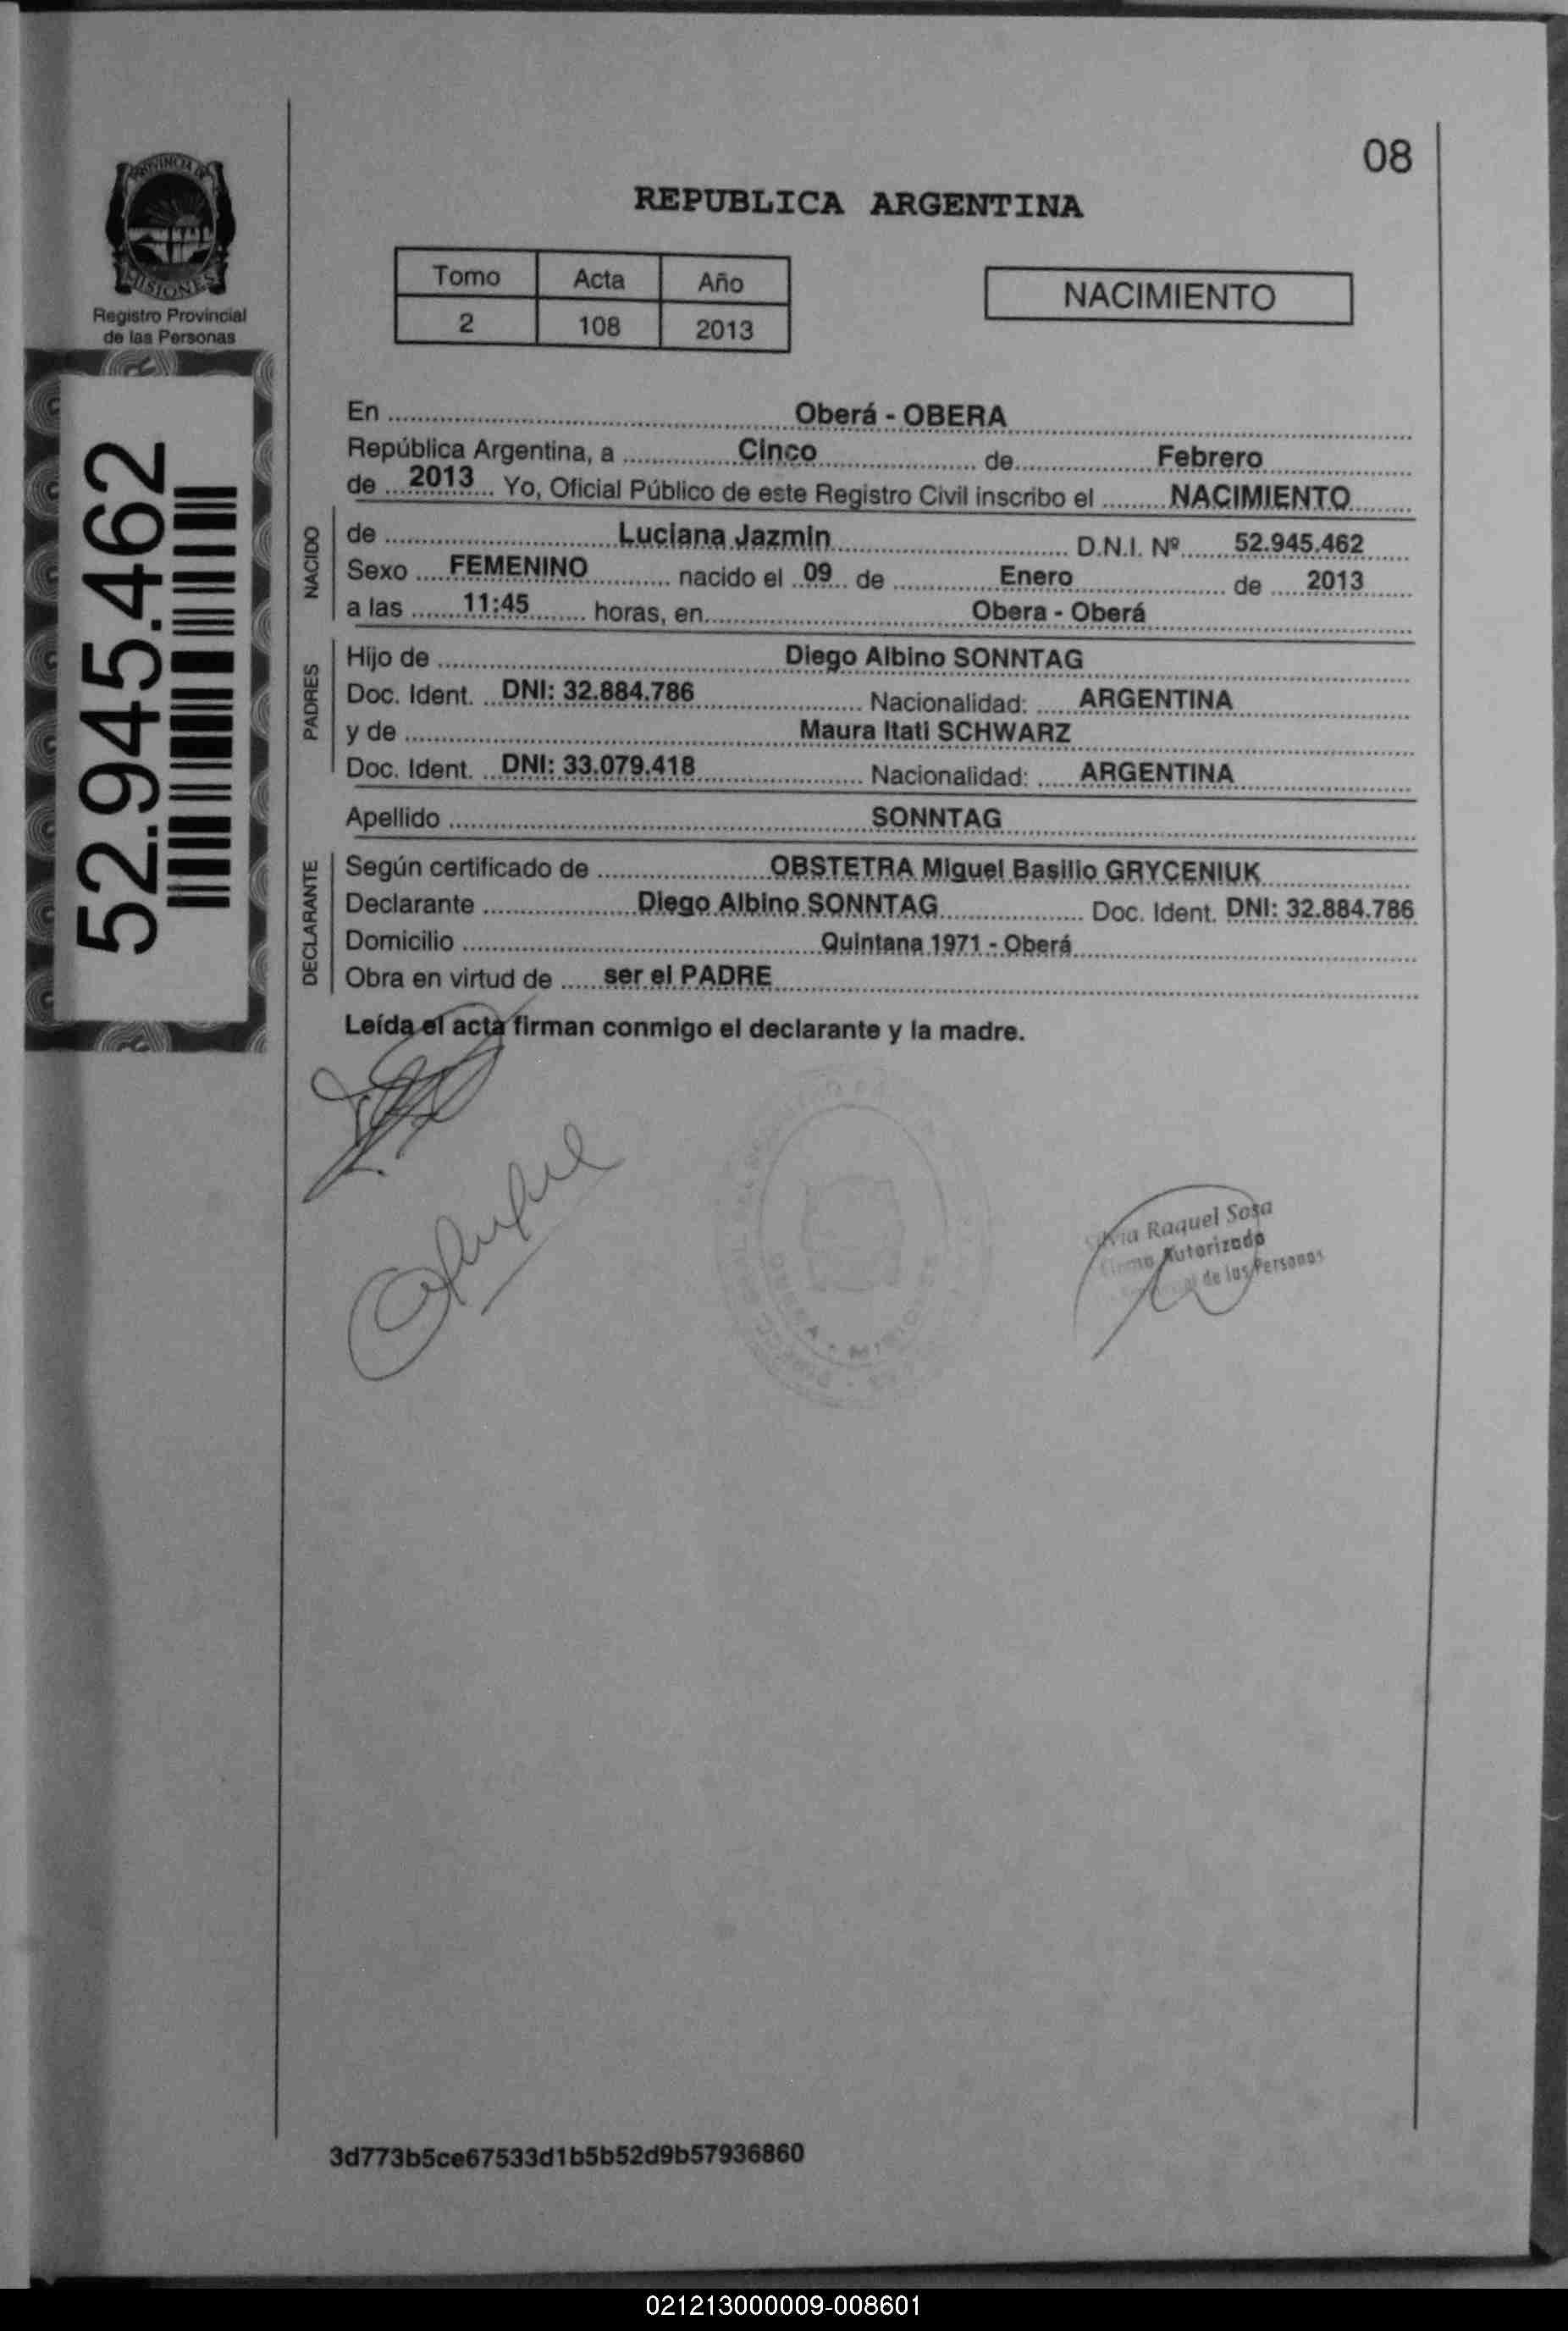 08
REPUBLICA ARGENTINA
PROVINCIA DE
MISIONES
Registro Provincial
de las Personas
Tomo Acta Año
2 108 2013
NACIMIENTO
52.945.462
En Oberá - OBERA
República Argentina, a Cinco de Febrero
de 2013 Yo, Oficial Público de este Registro Civil inscribo el NACIMIENTO
NACIDO
de Luciana Jazmin D.N.I. Nº 52.945.462
Sexo FEMENINO nacido el 09 de Enero de 2013
a las 11:45 horas, en Obera - Oberá
PADRES
Hijo de Diego Albino SONNTAG
Doc. Ident. DNI: 32.884.786 Nacionalidad: ARGENTINA
y de Maura Itati SCHWARZ
Doc. Ident. DNI: 33.079.418 Nacionalidad: ARGENTINA
Apellido SONNTAG
DECLARANTE
Según certificado de OBSTETRA Miguel Basilio GRYCENIUK
Declarante Diego Albino SONNTAG Doc. Ident. DNI: 32.884.786
Domicilio Quintana 1971 - Oberá
Obra en virtud de ser el PADRE
Leída el acta firman conmigo el declarante y la madre.
Silvia Raquel Sosa
Firma Autorizada
de las Personas
3d773b5ce67533d1b5b52d9b57936860
021213000009-008601